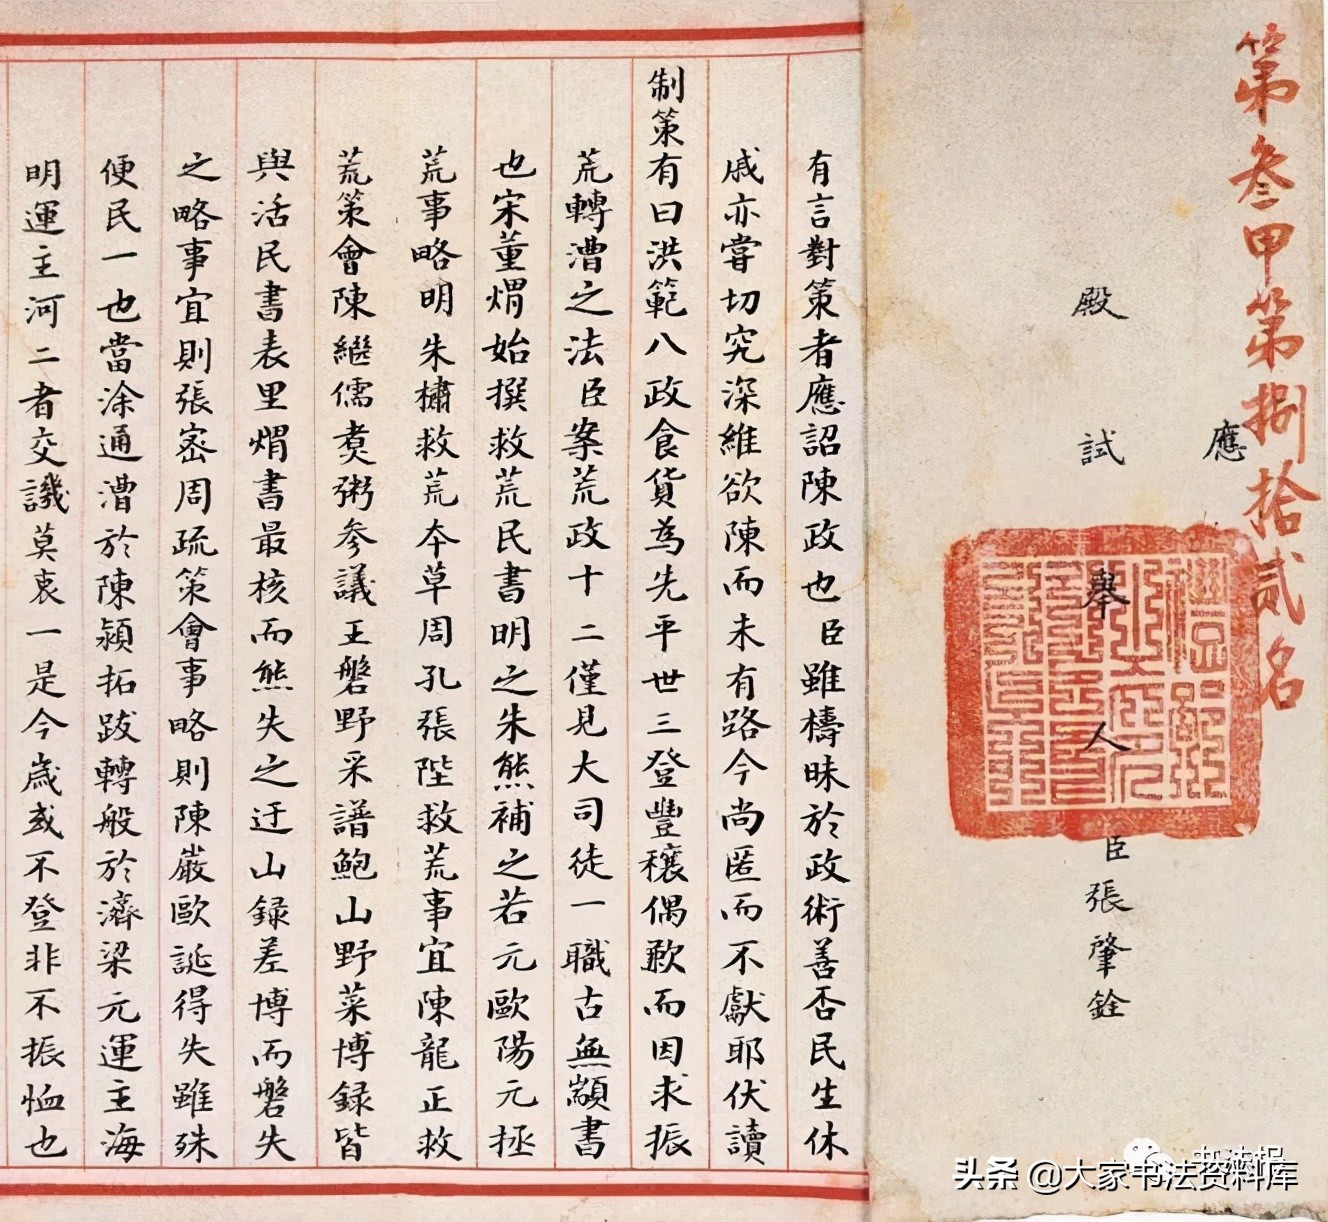 第叁甲第捌拾貳名
應
殿試舉人臣張肇銓
有言對策者應詔陳政也臣雖檮昧於政術善否民生休
戚亦嘗切究深維欲陳而未有路今尚匿而不獻耶伏讀
制策有曰洪範八政食貨為先平世三登豐穰偶歉而因求振
荒轉漕之法臣案荒政十二僅見大司徒一職古無顓書
也宋董煟始撰救荒民書明之朱熊補之若元歐陽元拯
荒事略明朱橚救荒本草周孔張陛救荒事宜陳龍正救
荒策會陳繼儒煑粥參議王磐野采譜鮑山野菜博錄皆
與活民書表里煟書最核而熊失之迂山錄差博而磐失
之略事宜則張密周疏策會事略則陳嚴歐誕得失雖殊
便民一也當涂通漕於陳潁拓跋轉般於濟梁元運主海
明運主河二者交譏莫衷一是今歲或不登非不振恤也
头条 @大家书法资料库
书法报